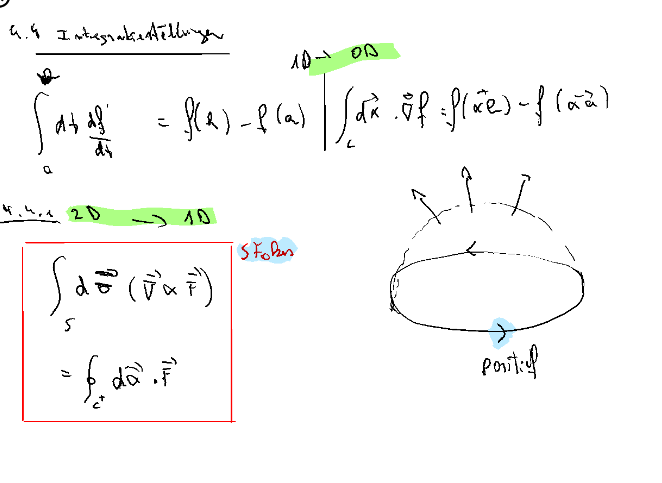 4.4 Integraalstellingen
1D → 0D
∫_a^b dt df/dt = f(b) - f(a) | ∫_c dx⃗ · ∇⃗f = f(x⃗_e) - f(x⃗_a)
4.4.1 2D → 1D
Stokes
∫_S dσ⃗ (∇⃗ × F⃗)
= ∮_{c⁺} dx⃗ · F⃗
positief